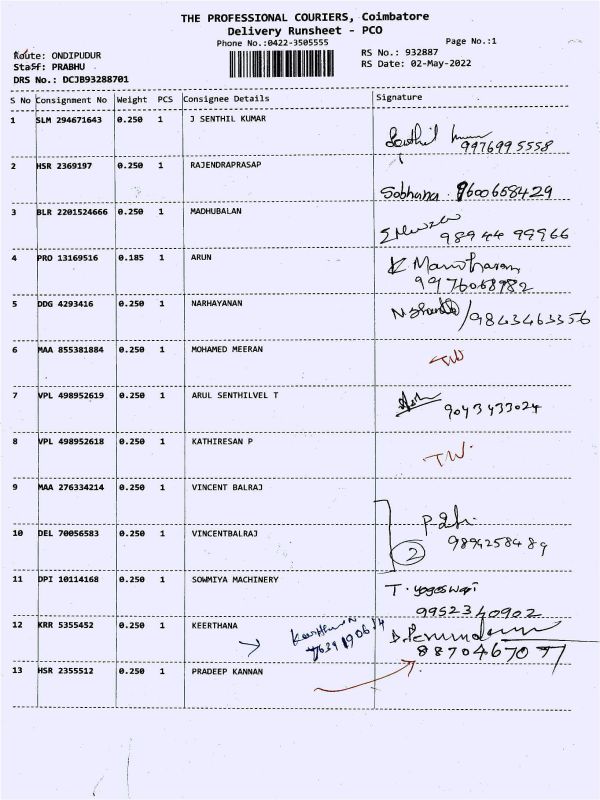 THE PROFESSIONAL COURIERS, Coimbatore
Delivery Runsheet - PCO
Phone No.:0422-3505555
Page No.:1
Route: ONDIPUDUR
RS No.: 932887
Staff: PRABHU
RS Date: 02-May-2022
DRS No.: DCJB93288701
S No Consignment No Weight PCS Consignee Details Signature
1 SLM 294671643 0.250 1 J SENTHIL KUMAR
Senthil kumar
9976995558
2 HSR 2369197 0.250 1 RAJENDRAPRASAP
Sobhana 9600668429
3 BLR 2201524666 0.250 1 MADHUBALAN
98944 99966
4 PRO 13169516 0.185 1 ARUN
K Manoharan
9976068982
5 DDG 4293416 0.250 1 NARHAYANAN
/9843463356
6 MAA 855381884 0.250 1 MOHAMED MEERAN
TW
7 VPL 498952619 0.250 1 ARUL SENTHILVEL T
9043433024
8 VPL 498952618 0.250 1 KATHIRESAN P
T.W.
9 MAA 276334214 0.250 1 VINCENT BALRAJ
10 DEL 70056583 0.250 1 VINCENTBALRAJ
2
9894258489
11 DPI 10114168 0.250 1 SOWMIYA MACHINERY
T. yogeswari
9952340902
12 KRR 5355452 0.250 1 KEERTHANA
8870467077
13 HSR 2355512 0.250 1 PRADEEP KANNAN